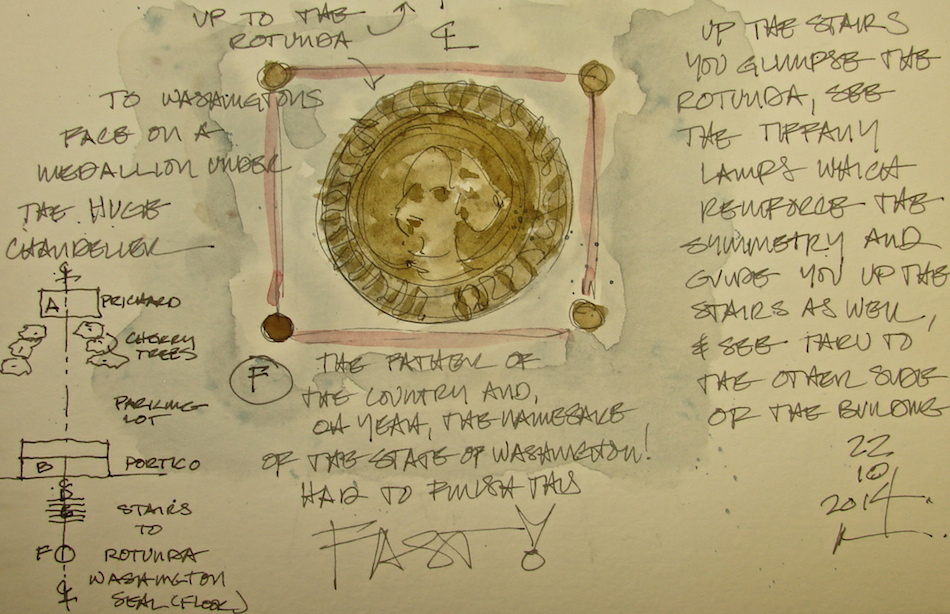 UP TO THE
ROTUNDA
℄
TO WASHINGTONS
FACE ON A
MEDALLION UNDER
THE HUGE
CHANDELIER
℄
A
PRICHARD
CHERRY
TREES
PARKING
LOT
B
PORTICO
STAIRS
TO
F
ROTUNDA
WASHINGTON
SEAL (FLOOR)
℄
F
THE FATHER OF
THE COUNTRY AND,
OH YEAH, THE NAMESAKE
OF THE STATE OF WASHINGTON!
HAD TO FINISH THIS
FAST!
UP THE STAIRS
YOU GLIMPSE THE
ROTUNDA, SEE
THE TIFFANY
LAMPS WHICH
REINFORCE THE
SYMMETRY AND
GUIDE YOU UP THE
STAIRS AS WELL,
& SEE THRU TO
THE OTHER SIDE
OF THE BUILDING
22
10
2014